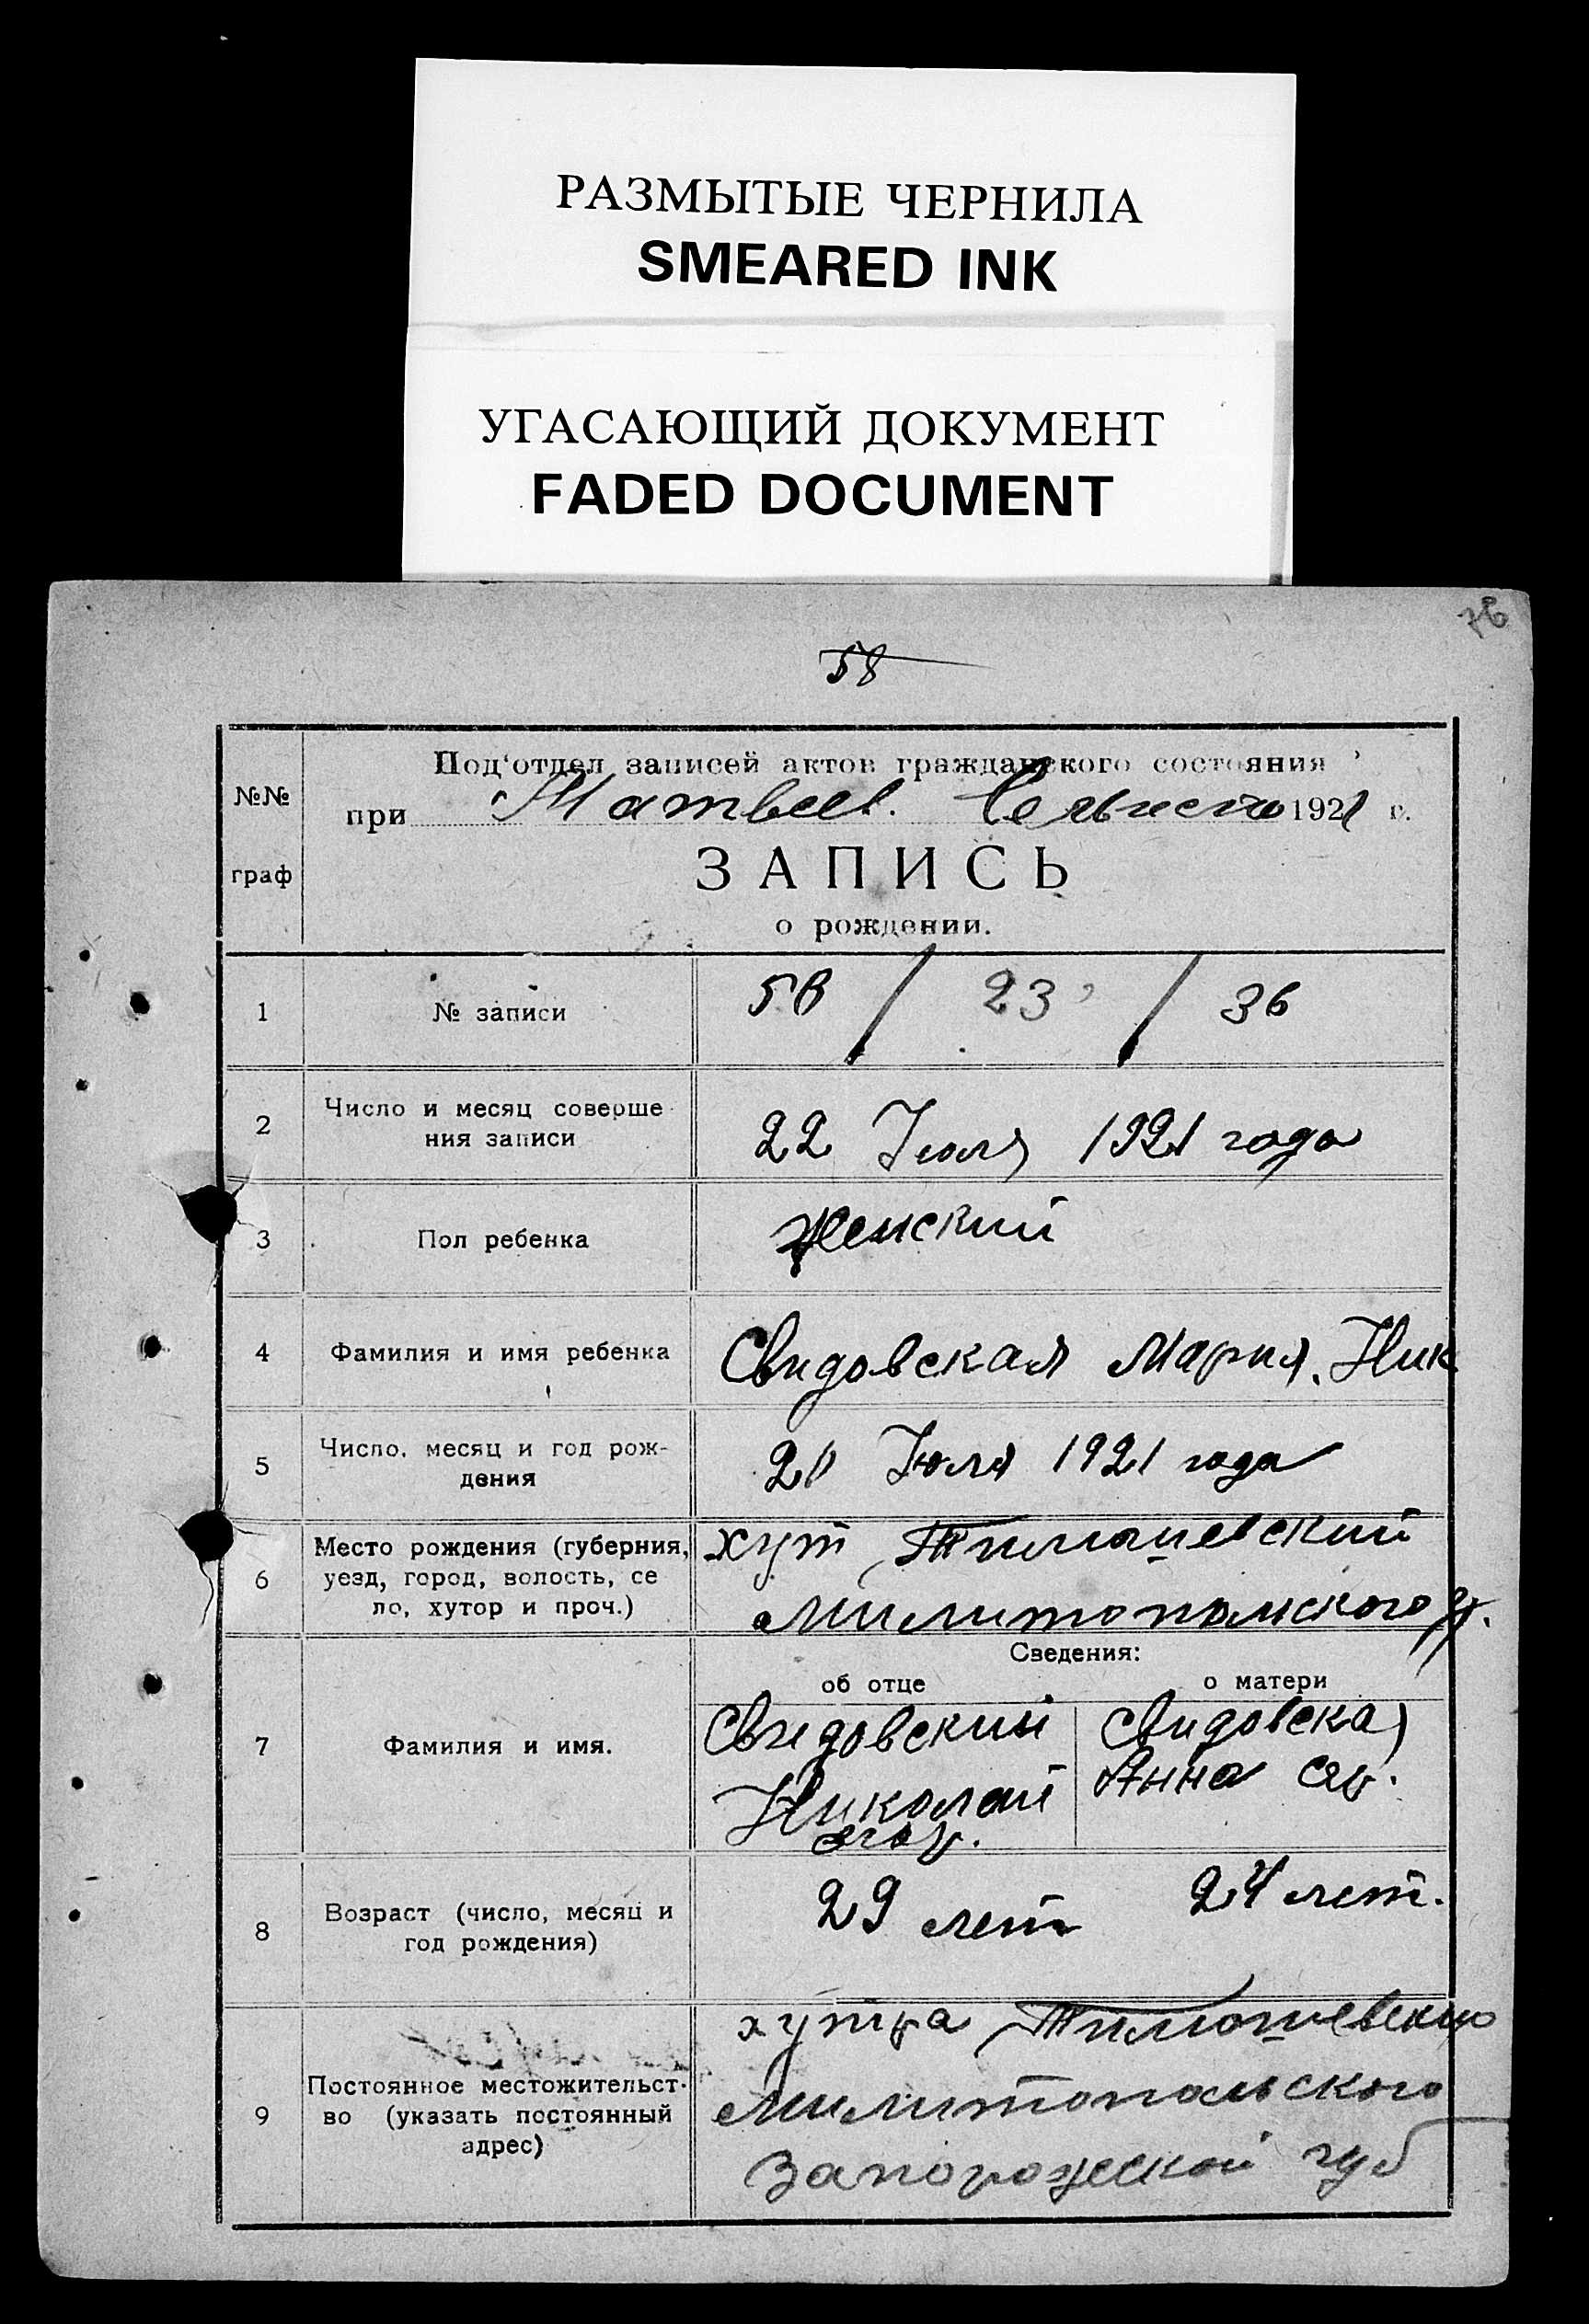 РАЗМЫТЫЕ ЧЕРНИЛА
SMEARED INK
УГАСАЮЩИЙ ДОКУМЕНТ
FADED DOCUMENT
58
№№
граф
Под‘отдел записей актов гражданского состояния
при Матвеев. 1921 г.
ЗАПИСЬ
о рождении.
1
№ записи
58 / 23 / 36
2
Число и месяц соверше
ния записи
22 Июля 1921 года
3
Пол ребенка
Женский
4
Фамилия и имя ребенка
Свидовская Мария. Ник
5
Число, месяц и год рож-
дения
20 Июля 1921 года
6
Место рождения (губерния,
уезд, город, волость, се
ло, хутор и проч.)
хут Тимашевский
Милитопольского у.
Сведения:
об отце
о матери
7
Фамилия и имя.
Свидовский
Николай
Свидовская
Анна
8
Возраст (число, месяц и
год рождения)
29 лет
24 лет.
9
Постоянное местожительст-
во (указать постоянный
адрес)
хутра Тимошевкого
Милитопольского
Запорожской губ